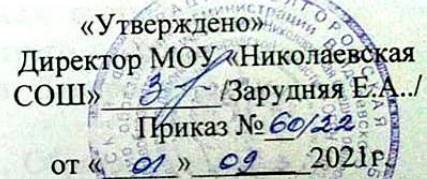 «Утверждено»
Директор МОУ «Николаевская
СОШ» /Зарудняя Е.А../
Приказ № 60/22
от « 01 » 09 2021г.